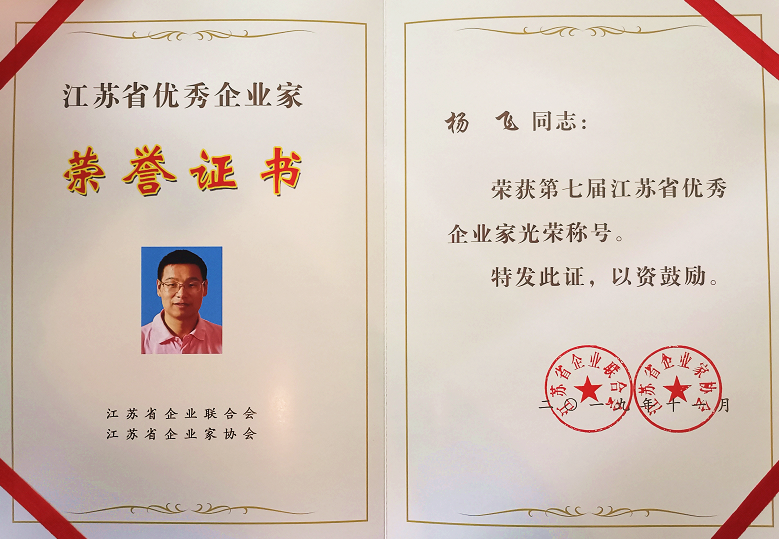 江苏省优秀企业家
荣誉证书
江苏省企业联合会
江苏省企业家协会
杨 飞 同志：
荣获第七届江苏省优秀
企业家光荣称号。
特发此证，以资鼓励。
江苏省企业联合会
江苏省企业家协会
二〇一九年十一月